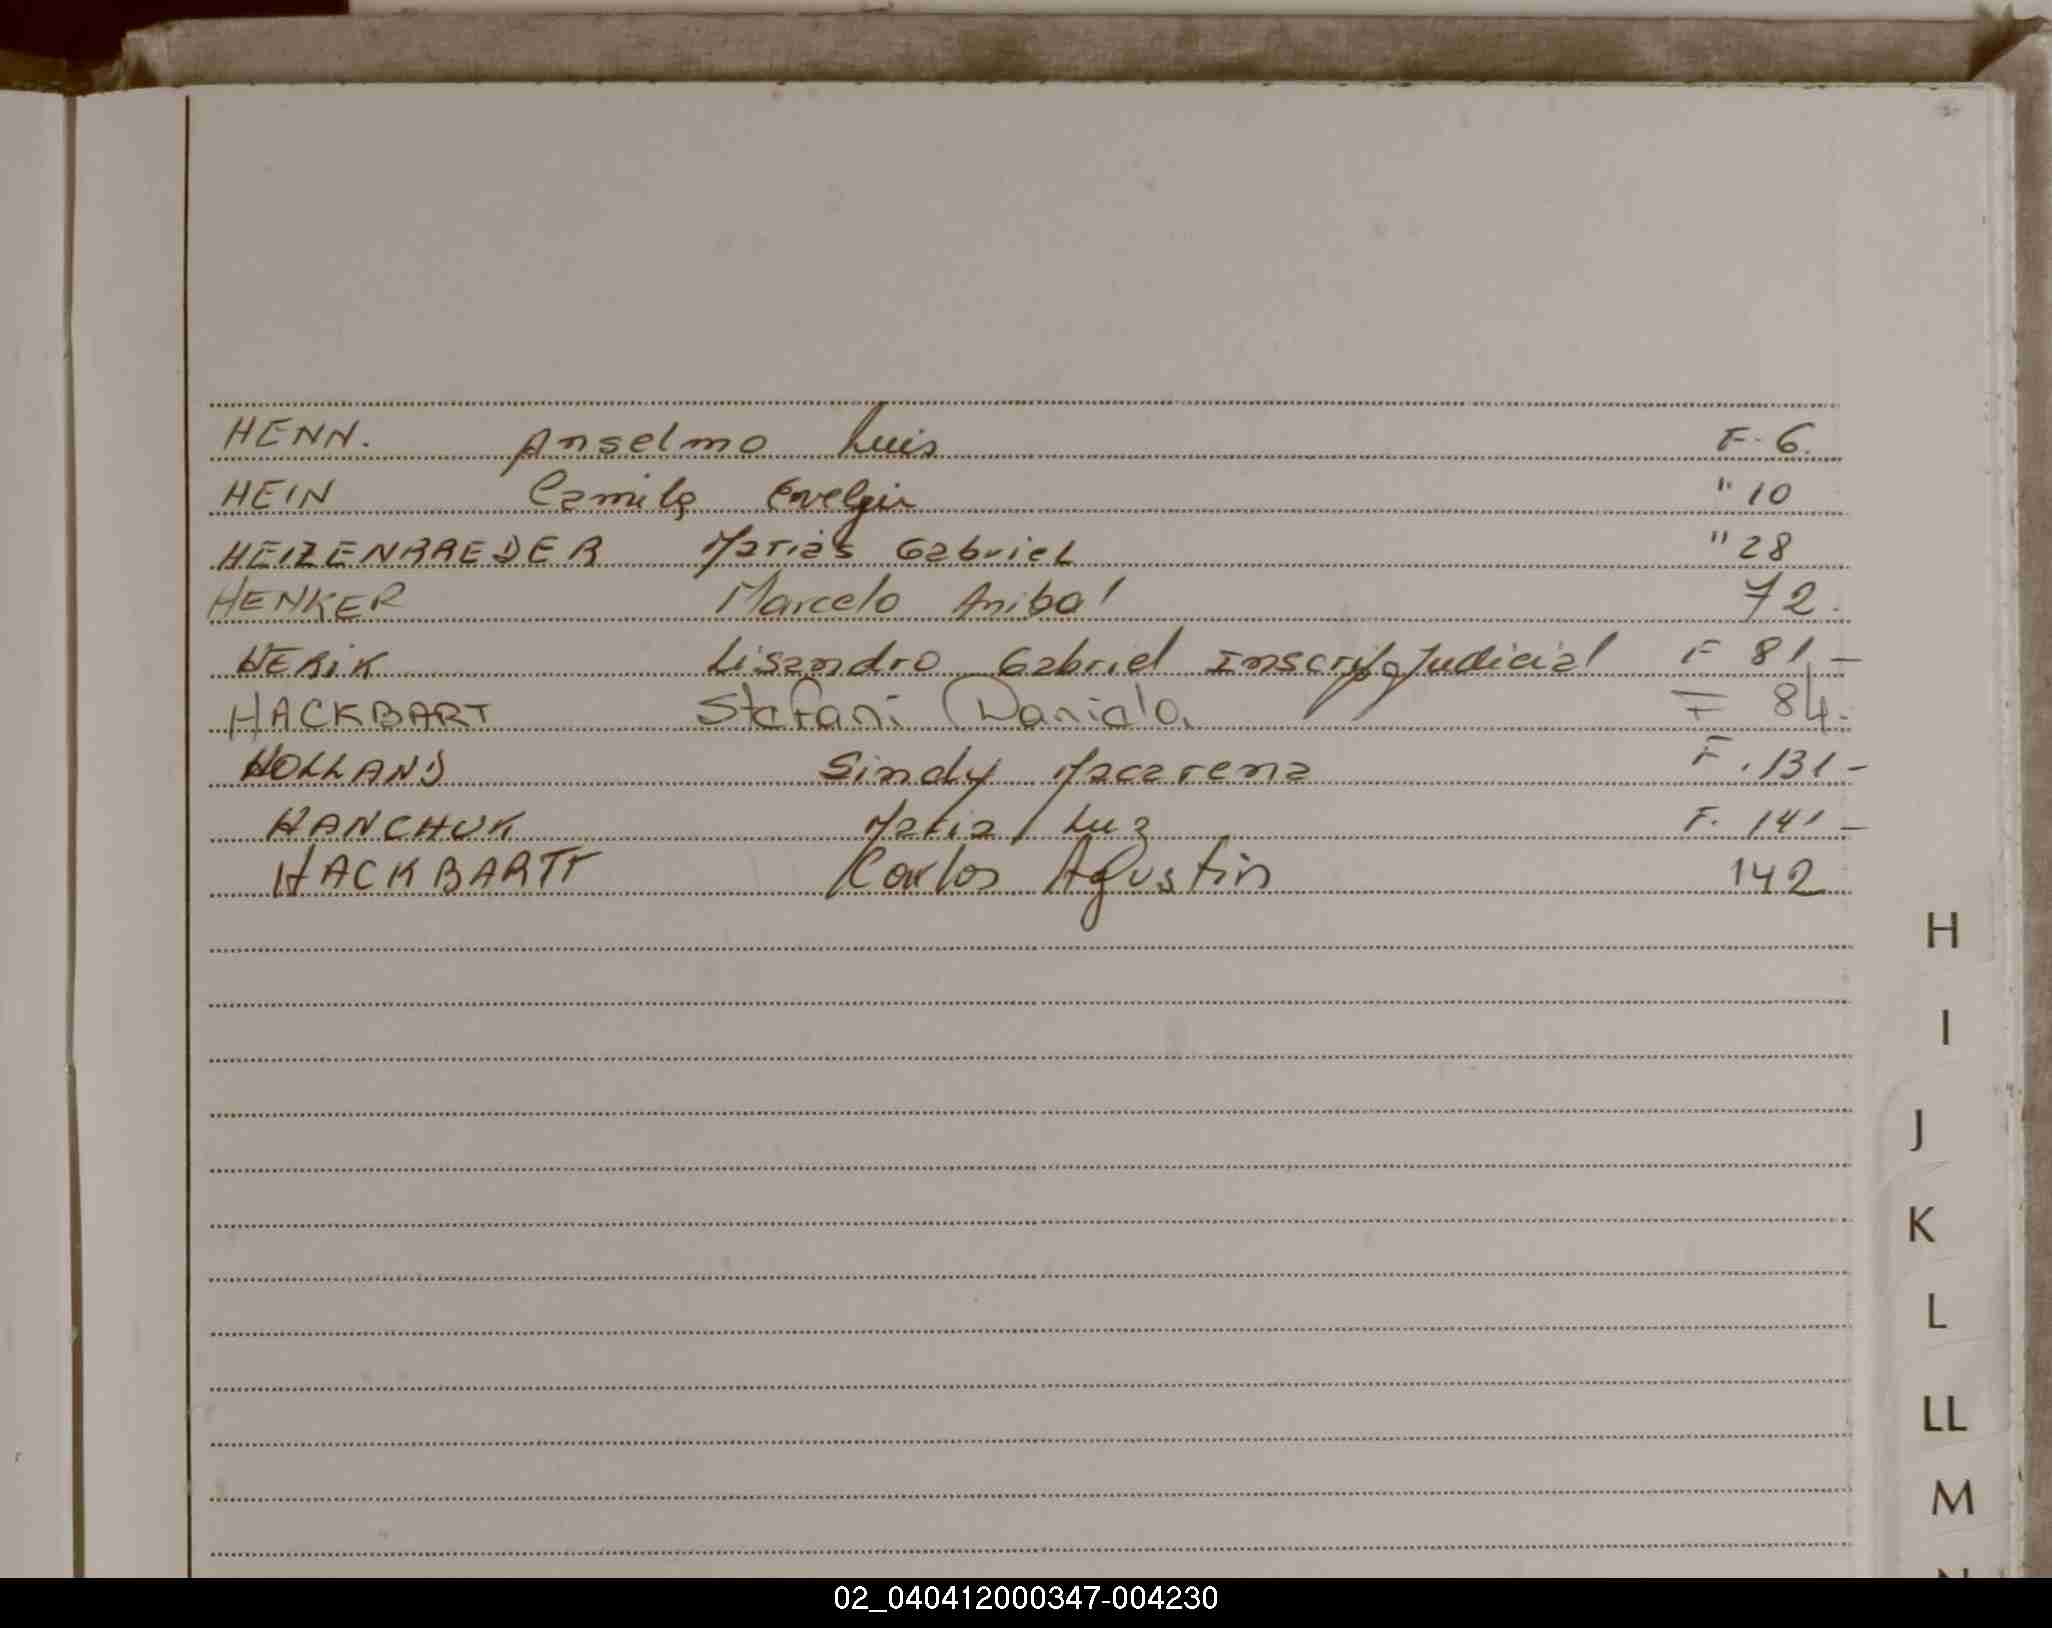 HENN. Anselmo Luis F. 6.
HEIN Camila Evelyin " 10
HEIZENRREDER Matias Gabriel " 28
HENKER Marcelo Anibal 72.
HERIK Lisandro Gabriel Inscrip. Judicial F 81 -
HACKBART Stefani Daniela F 84.
HOLLAND Sindy Macarena F. 131 -
HANCHUK Maria Luz F. 141 -
HACKBARTT Carlos Agustin 142
H
I
J
K
L
LL
M
02_040412000347-004230